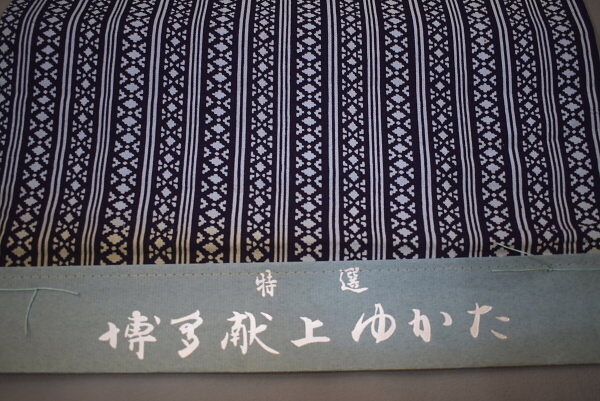 特選
博多献上ゆかた